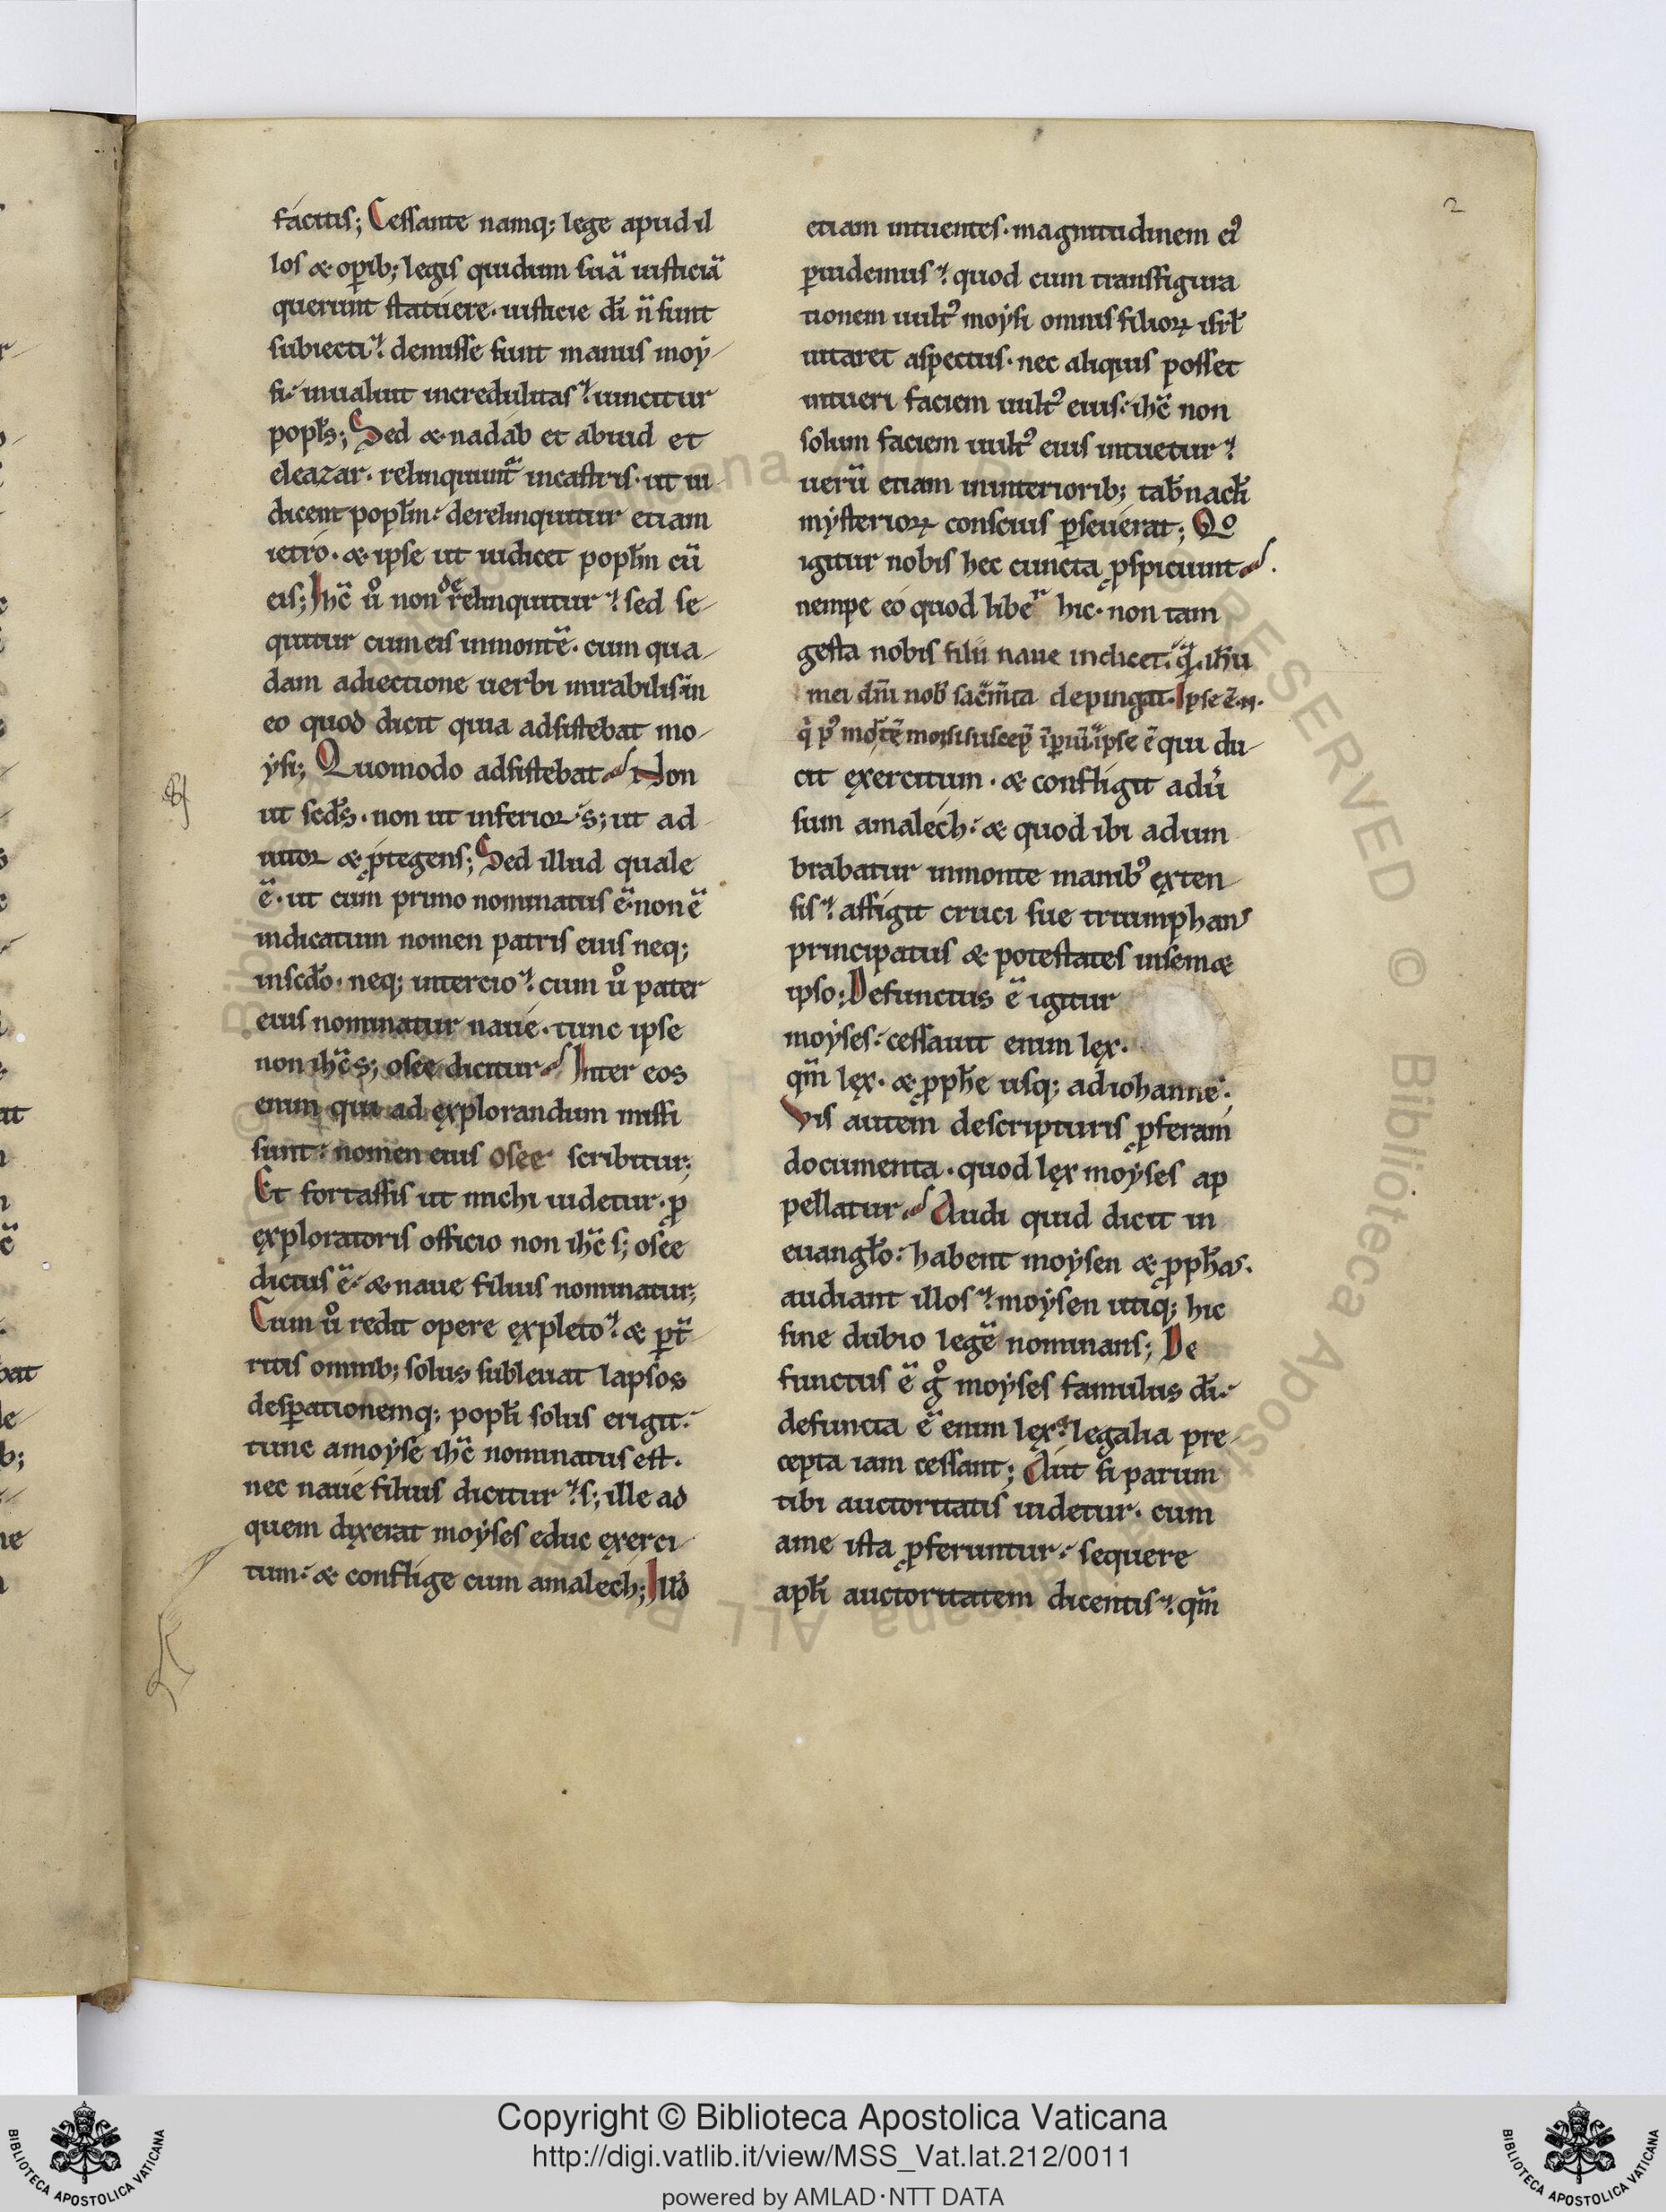 2
facitis; Cessante namq; lege apud il
los & op̄ib; legis qui dum suā iusticiā
querunt statuere· iusticie dī ñ sunt
subiecti? demisse sunt manus moy-
si· inualuit incredulitas? uincitur
popl̄s; Sed & nadab et abiud et
eleazar· relinquunt̄ incastris· ut iu-
dicent popl̄m· derelinquitur etiam
ietro· & ipse ut iudicet popl̄m cū
eis; Ihc̄ ůo non derelinquitur? sed se-
quitur cum eis inmontē· cum qua-
dam adiectione uerbi mirabilis īn
eo quod dicit quia adsistebat mo-
ysi; Quomodo adsistebat? Non
ut scd̄s· non ut inferior· s; ut ad-
iutor & ꝓtegens; Sed illud quale
ē· ut cum primo nominatus ē· non ē
indicatum nomen patris eius neq;
inscd̄o· neq; intercio? cum ůo pater
eius nominatur naue· tunc ipse
non ihc̄ s; osee dicitur? Inter eos
enim qui ad explorandum missi
sunt· nomen eius osee scribitur;
Et fortassis ut michi uidetur· ꝓ
exploratoris officio non ihc̄ s; osee
dictus ē· & naue filius nominatur;
Cum ůo redit opere expleto? & p̱t̄
ritis omnib; solus subleuat lapsos
desp̱ationemq; popl̄i solus erigit·
tunc amoyse ihc̄ nominatus est·
nec naue filius dicitur? s; ille ad
quem dixerat moyses educ exerci
tum· & conflige cum amalech; Illď
etiam intuentes· magnitudinem ei⁹
p̱uidemus? quod cum transfigura
tionem uult⁹ moysi omnis filioꝝ isrl̄
uitaret aspectus· nec aliquis posset
intueri faciem uult⁹ eius· ihc̄ non
solum faciem uult⁹ eius intuetur?
uerū etiam ininteriorib; tab̄nacl̄i
mysterioꝝ conscius p̱seuerat; Qo
igitur nobis hec cuncta ꝓspiciunt?
nempe eo quod liber hic· non tam
gesta nobis filii naue indicet· qͣ ihu
mei dn̄i nob̄ sacm̄ta depingat· Ipse ē·n·
q̇ p⁹ mortē moysi suscep̱ īp̱iū· ipse ē qui du-
cit exercitum· & confligit adů
sum amalech· & quod ibi adum
brabatur inmonte manib⁹ exten
sis? affigit cruci sue triumphans
principatus & potestates insem&
ipso; Defunctus ē igitur
moyses· cessauit enim lex·
qm̄ lex· & ꝓphe usq; adiohannē·
Vis autem descripturis ꝓferam
documenta· quod lex moyses ap
pellatur? Audi quid dicit in
euangl̄o· habent moysen & ꝓphas·
audiant illos? moysen utiq; hic
sine dubio legē nominans; De
functus ē g̊ moyses famulus dī·
defuncta ē enim lex? legalia pre-
cepta iam cessant; Aut si parum
tibi auctoritatis uidetur· cum
ame ista ꝓferuntur· sequere
apl̄i auctoritatem dicentis? qm̄
Copyright © Biblioteca Apostolica Vaticana
http://digi.vatlib.it/view/MSS_Vat.lat.212/0011
powered by AMLAD·NTT DATA
BIBLIOTECA APOSTOLICA VATICANA
BIBLIOTECA APOSTOLICA VATICANA